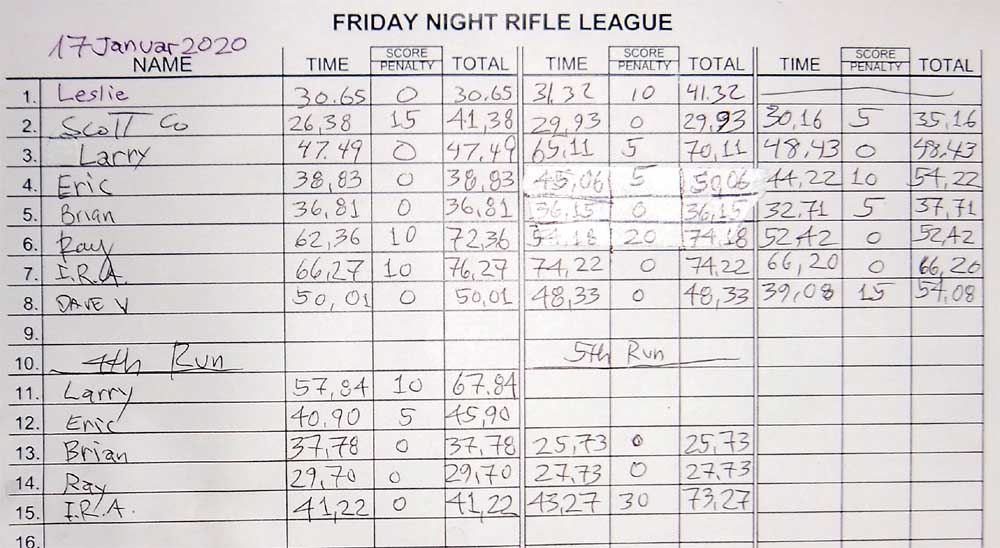 FRIDAY NIGHT RIFLE LEAGUE
17 Januar 2020
SCORE SCORE SCORE
NAME TIME PENALTY TOTAL TIME PENALTY TOTAL TIME PENALTY TOTAL
1. Leslie 30.65 0 30.65 31.32 10 41.32
2. Scott Co 26,38 15 41,38 29,93 0 29,93 30,16 5 35,16
3. Larry 47.49 0 47,49 65,11 5 70,11 48,43 0 48,43
4. Eric 38,83 0 38,83 45,06 5 50,06 44,22 10 54,22
5. Brian 36,81 0 36,81 36,15 0 36,15 32,71 5 37,71
6. Ray 62,36 10 72,36 54,18 20 74,18 52,42 0 52,42
7. I.R.A. 66,27 10 76,27 74,22 0 74,22 66,20 0 66,20
8. DAVE V 50,01 0 50,01 48,33 0 48,33 39,08 15 54,08
9.
10. 4th Run 5th Run
11. Larry 57,84 10 67.84
12. Eric 40,90 5 45,90
13. Brian 37,78 0 37,78 25,73 0 25,73
14. Ray 29,70 0 29,70 27,73 0 27,73
15. I.R.A. 41,22 0 41,22 43,27 30 73,27
16.